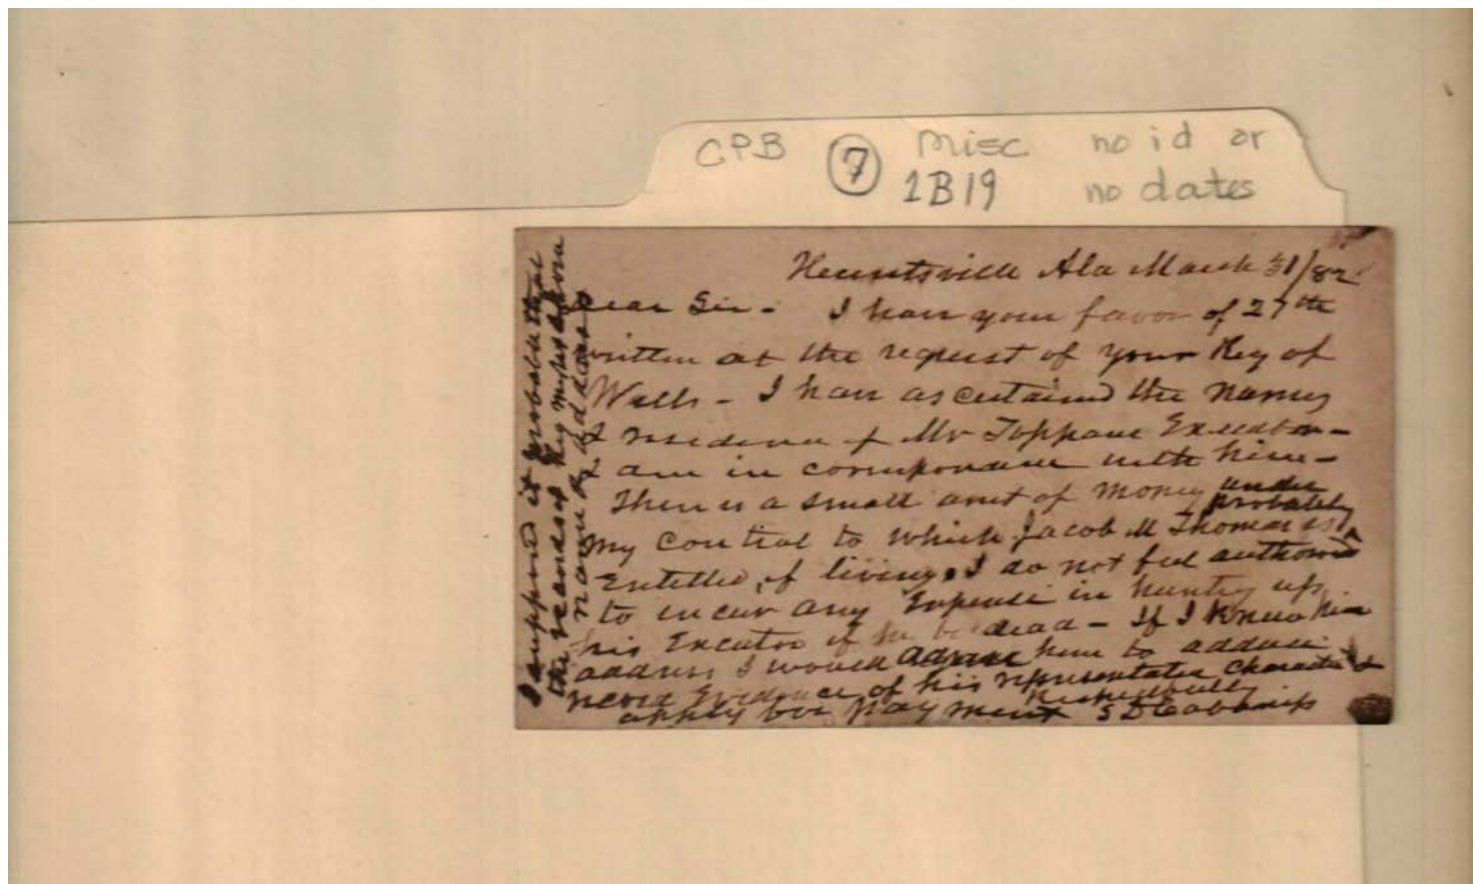 CPB 7 Misc no id or
1B19 no dates
Huntsville Ala March 31/82
Dear Sir - I have your favor of 27th
written at the request of your Reg of
Wills - I have ascertained the names
& residence of Mr Toppans Executor -
& am in correspondence with him -
There is a small amt of money under
my control to which Jacob M Thomas is probably
Entitled, if living. I do not feel authorised
to incur any Expense in hunting up
his Executor if he be dead - If I knew his
address I would advise him to adduce
record Evidence of his representative character &
apply for payment Respectfully
S D Cabaniss
I suppose it probable that
the records of Reg might show
name & address